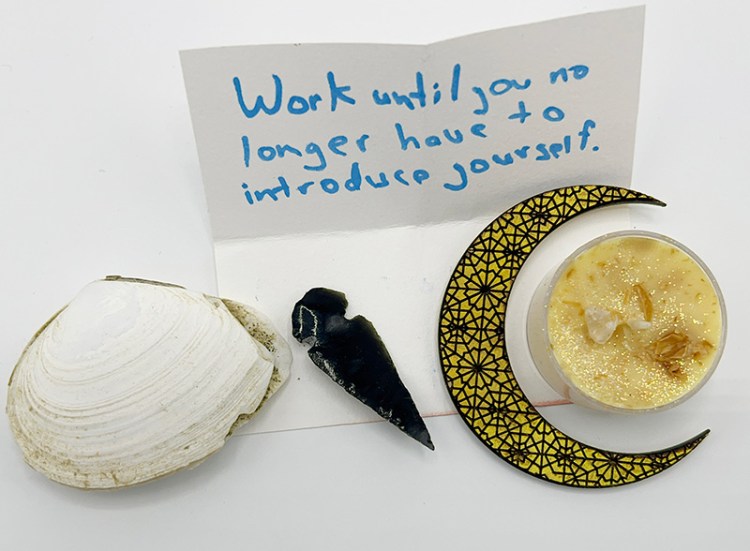 Work until you no
longer have to
introduce yourself.